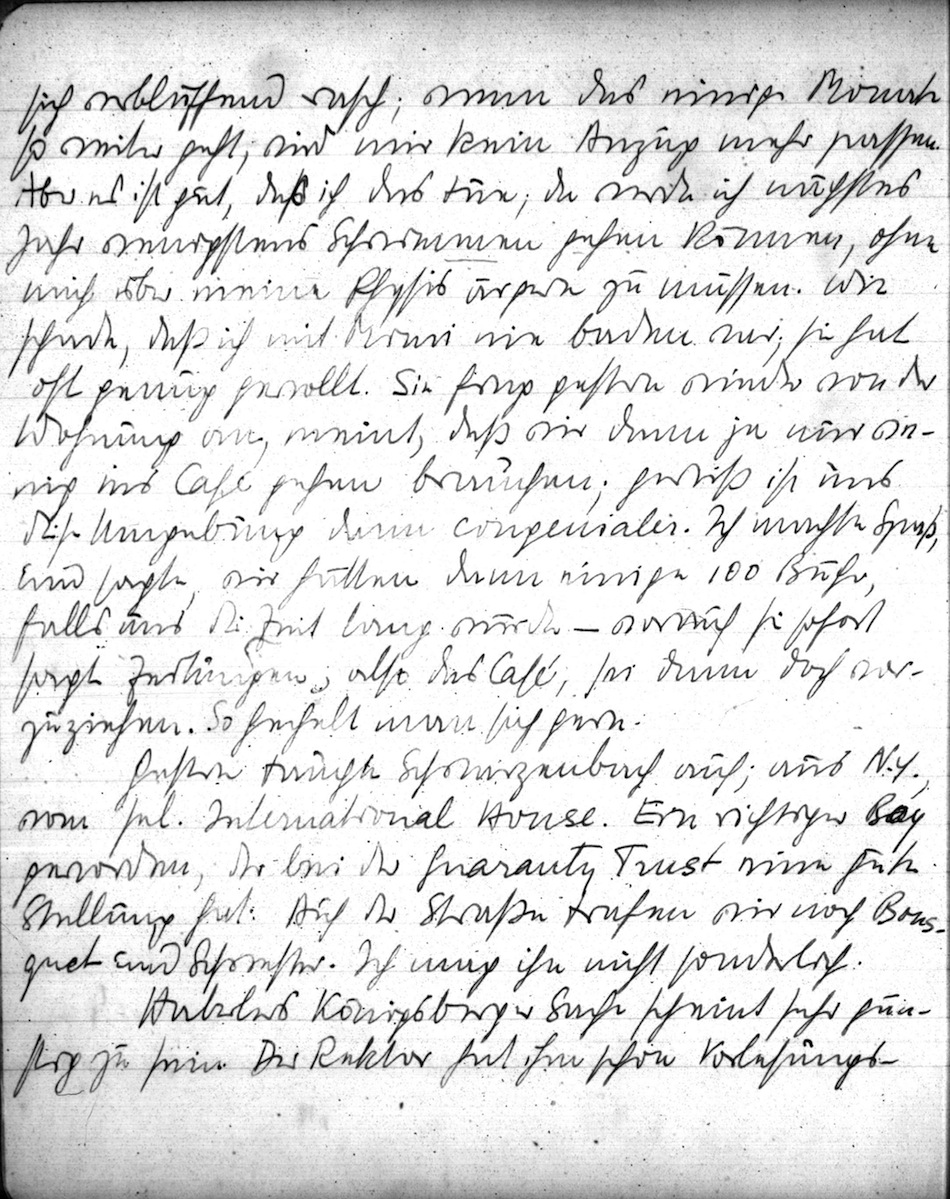 sich verblüffend rasch; wenn das einige Monate
so weiter geht, wird mir kein Anzug mehr passen.
Aber es ist gut, daß ich das tue; da werde ich nächstes
Jahr wenigstens Schwimmen gehen können, ohne
mich über meine Physis ärgern zu müssen. Wie
schade, daß ich mit nie baden war; sie hat
oft genug gewollt. Sie fing gestern wieder von der
Wohnung an, meint, daß wir dann ja nur we-
nig ins Café gehen brauchen; gewiß ist uns
diese Umgebung dann congenialer. Ich machte Spaß,
und sagte, wir hätten dann einige 100 Bücher,
falls uns die Zeit lang würde – worauf sie sofort
sagte Zeitungen, also das Café, sei dann doch vor-
zuziehen. So hechelt man sich gern.
Gestern tauchte Schwarzenbach auf; aus N.Y.,
vom sel. International House. Ein richtiger Boy
geworden, der bei der Guaranty Trust eine gute
Stellung hat. Auf der Straße trafen wir noch Bous-
quet und Schwester. Ich mag ihn nicht sonderlich.
Haberlers Königsberger Sache scheint sehr gün-
stig zu sein. Der Rektor hat ihm schon Vorlesungs-